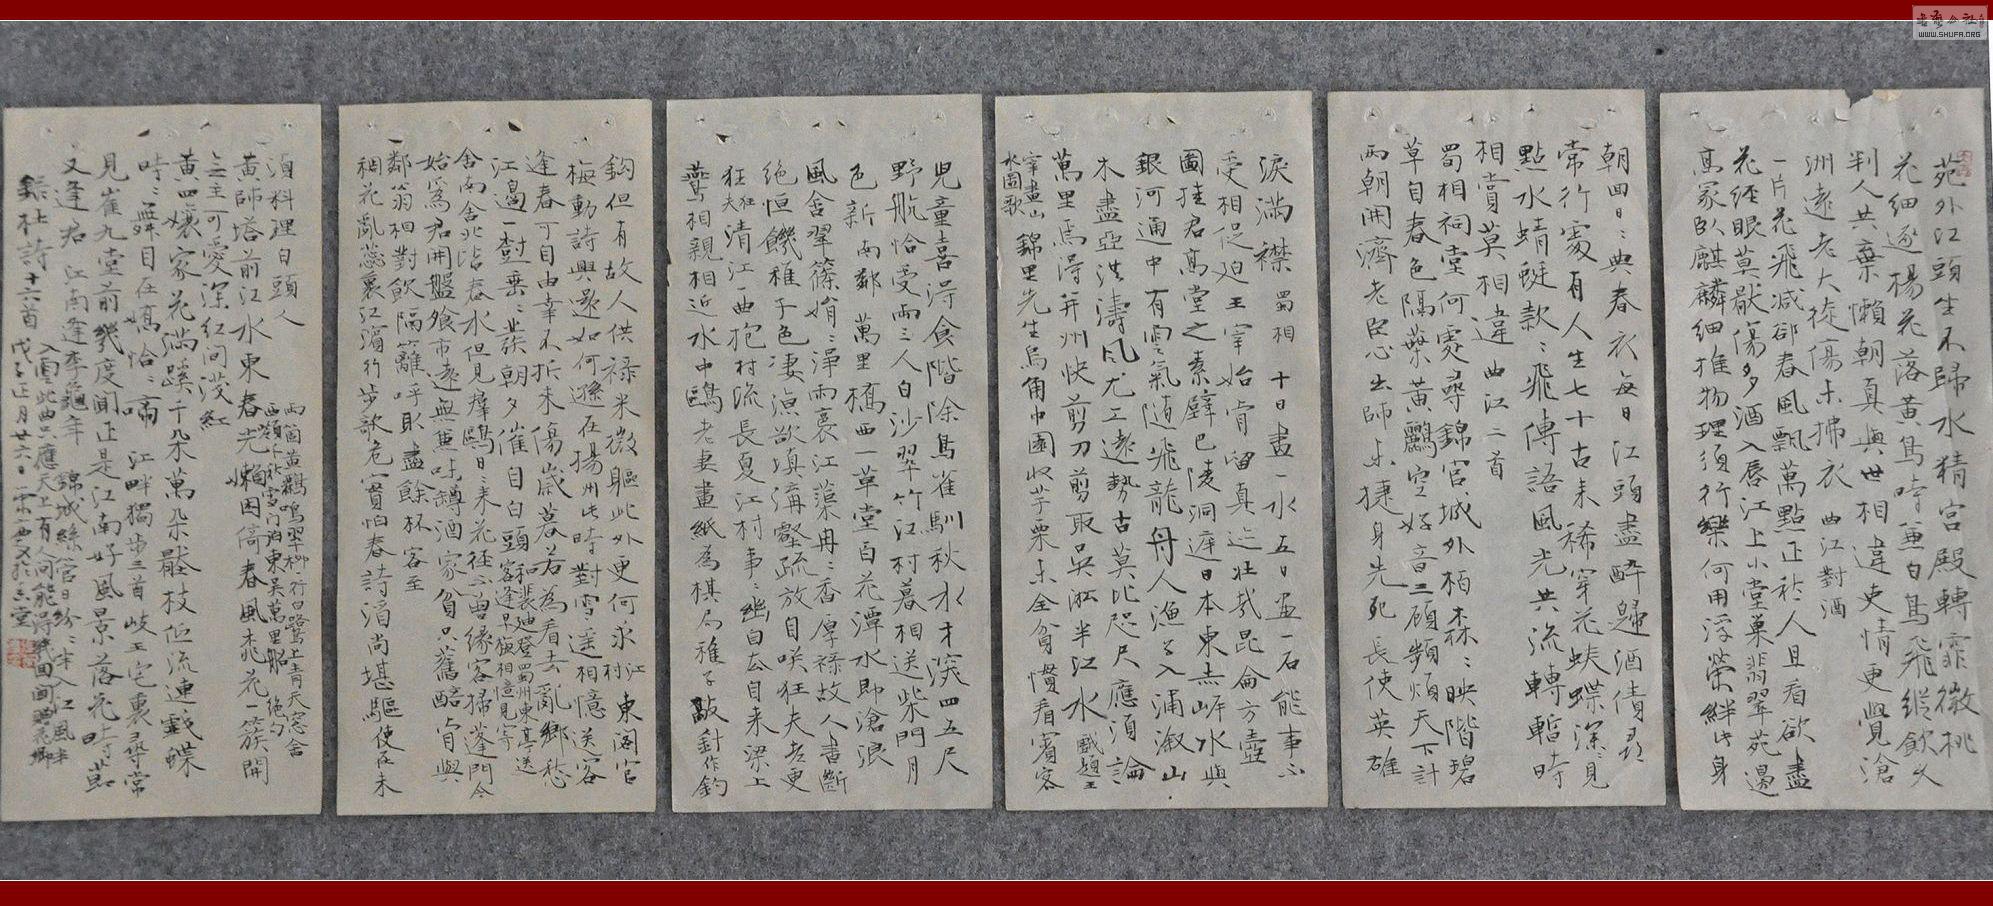 苑外江頭坐不歸水精宮殿轉霏微桃
花細逐楊花落黃鳥時兼白鳥飛縱飲久
判人共棄懶朝真與世相違吏情更覺滄
洲遠老大徒傷未拂衣 曲江對酒
一片花飛減卻春風飄萬點正愁人且看欲盡
花經眼莫厭傷多酒入唇江上小堂巢翡翠苑邊
高冢臥麒麟細推物理須行樂何用浮榮絆此身
朝回日日典春衣每日江頭盡醉歸酒債尋
常行處有人生七十古來稀穿花蛺蝶深深見
點水蜻蜓款款飛傳語風光共流轉暫時
相賞莫相違 曲江二首
蜀相祠堂何處尋錦官城外柏森森映階碧
草自春色隔葉黃鸝空好音三顧頻煩天下計
兩朝開濟老臣心出師未捷身先死長使英雄
淚滿襟 蜀相 十日畫一水五日畫一石能事不
受相促迫王宰始肯留真迹壯哉昆侖方壺
圖挂君高堂之素壁巴陵洞庭日本東赤岸水與
銀河通中有雲氣隨飛龍舟人漁子入浦溆山
木盡亞洪濤風尤工遠勢古莫比咫尺應須論
萬里焉得并州快剪刀剪取吳淞半江水 戲題王
宰畫山水圖歌 錦里先生烏角巾園收芋栗未全貧慣看賓客
兒童喜得食階除鳥雀馴秋水才深四五尺
野航恰受兩三人白沙翠竹江村暮相送柴門月
色新 南鄰 萬里橋西一草堂百花潭水即滄浪
風含翠篠娟娟淨雨裛江蕖冉冉香厚祿故人書斷
絕恒饑稚子色凄涼欲填溝壑疏放自笑狂夫老更
狂 狂夫 清江一曲抱村流長夏江村事事幽自去自來梁上
燕相親相近水中鷗老妻畫紙為棋局稚子敲針作釣
鈎但有故人供祿米微軀此外更何求 江村 東閣官
梅動詩興還如何遜在揚州此時對雪遙相憶送客
逢春可自由幸不折來傷歲暮若為看去亂鄉愁
江邊一樹垂垂發朝夕催自白頭 和裴迪登蜀州東亭送客逢早梅相憶見寄
舍南舍北皆春水但見群鷗日日來花徑不曾緣客掃蓬門今
始為君開盤飧市遠無兼味樽酒家貧只舊醅肯與
鄰翁相對飲隔籬呼取盡餘杯 客至
稠花亂蕊裹江濱行步欹危實怕春詩酒尚堪驅使在未
須料理白頭人 兩箇黃鸝鳴翠柳一行白鷺上青天窗含
西嶺千秋雪門泊東吳萬里船 絕句
黃師塔前江水東春光懶困倚春風桃花一簇開
無主可愛深紅間淺紅
黃四孃家花滿蹊千朵萬朵壓枝低流連戲蝶
時時舞自在嬌恰恰啼 江畔獨步三首 岐王宅裏尋常
見崔九堂前幾度聞正是江南好風景落花時節
又逢君 江南逢李龜年 錦城絲管日紛紛半入江風半
入雲此曲只應天上有人間能得幾回聞 贈花卿
錄杜詩十六首 戊子正月廿六日
書法公社
WWW.SHUFA.ORG